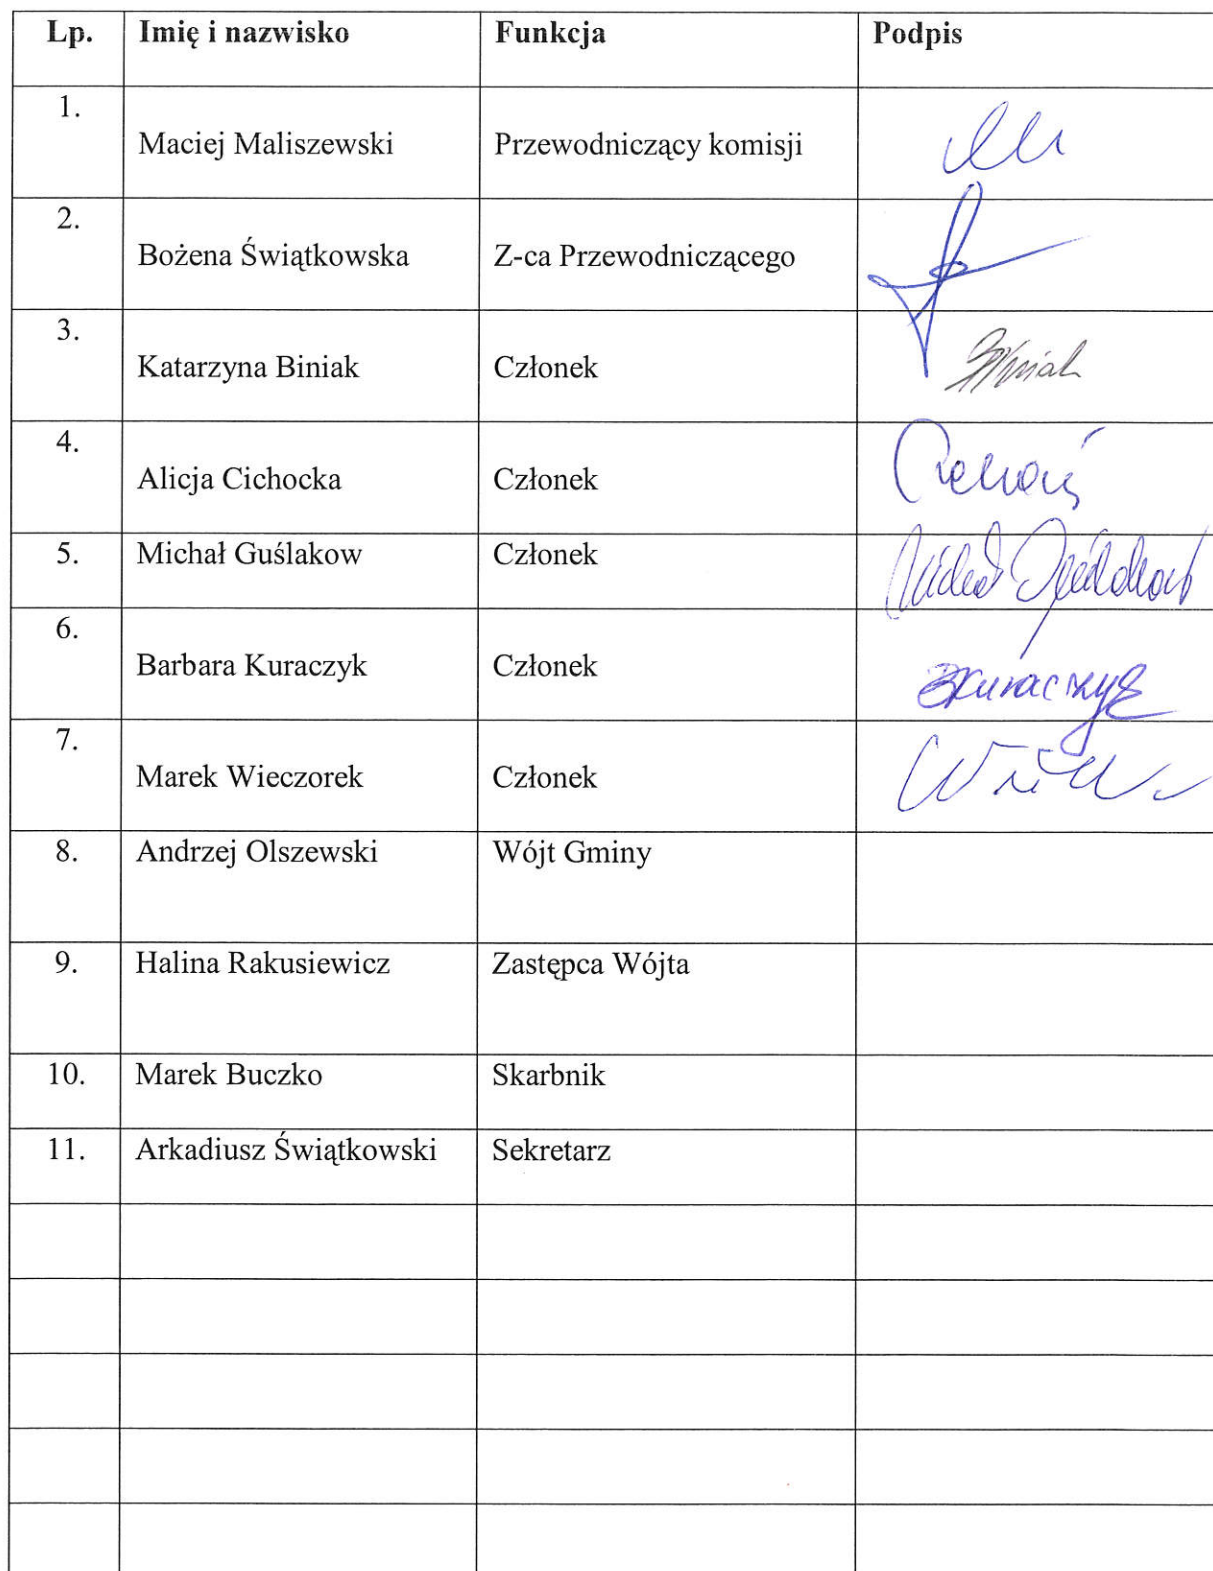 Lp. Imię i nazwisko Funkcja Podpis
1. Maciej Maliszewski Przewodniczący komisji
2. Bożena Świątkowska Z-ca Przewodniczącego
3. Katarzyna Biniak Członek
4. Alicja Cichocka Członek
5. Michał Guślakow Członek
6. Barbara Kuraczyk Członek BKuraczyk
7. Marek Wieczorek Członek
8. Andrzej Olszewski Wójt Gminy
9. Halina Rakusiewicz Zastępca Wójta
10. Marek Buczko Skarbnik
11. Arkadiusz Świątkowski Sekretarz